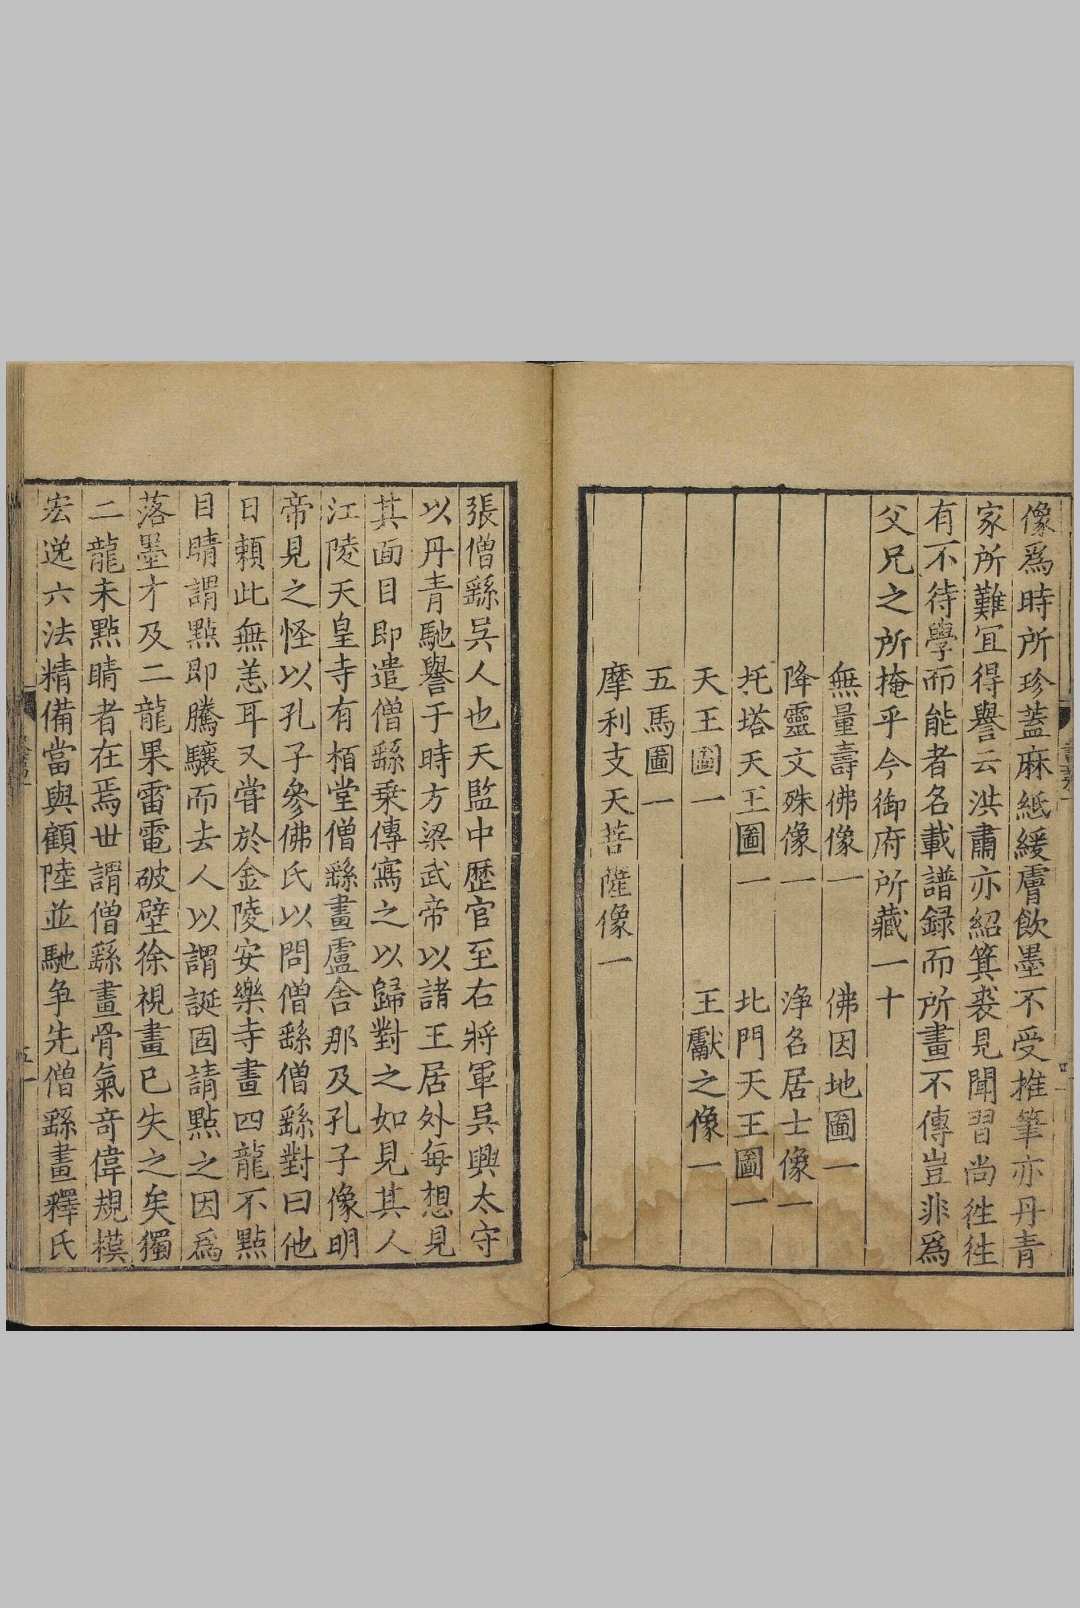 像爲時所珍蓋麻紙緩膚飲墨不受推筆亦丹青
家所難冝得譽云洪肅亦紹箕裘見聞習尚徃徃
有不待學而能者名載譜録而所畫不傳豈非爲
父兄之所掩乎今御府所藏一十
無量壽佛像一　佛因地圖一
降靈文殊像一　淨名居士像一
托塔天王圖一　北門天王圖一
天王圖一　王獻之像一
五馬圖一
摩利支天菩薩像一
張僧繇吳人也天監中歷官至右將軍吳興太守
以丹青馳譽于時方梁武帝以諸王居外每想見
其面目即遣僧繇乗傳寫之以歸對之如見其人
江陵天皇寺有栢堂僧繇畫盧舍那及孔子像明
帝見之怪以孔子參佛氏以問僧繇僧繇對曰他
日頼此無恙耳又嘗於金陵安樂寺畫四龍不點
目睛謂點即騰驤而去人以謂誕固請點之因爲
落墨才及二龍果雷電破壁徐視畫已失之矣獨
二龍未點睛者在焉世謂僧繇畫骨氣竒偉規模
宏逸六法精備當與顧陸並馳争先僧繇畫釋氏